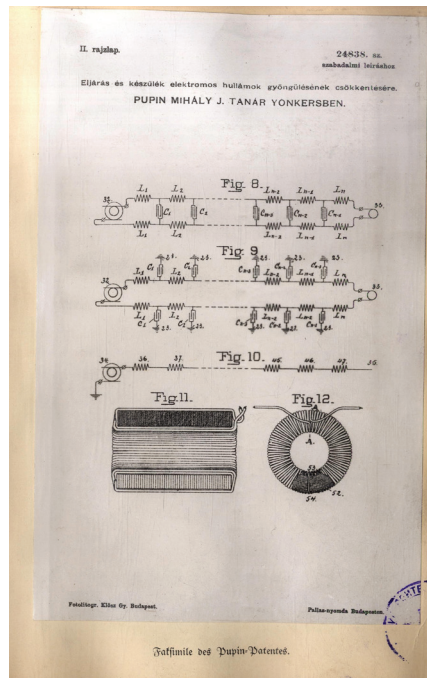 II. rajzlap.
24838. sz.
szabadalmi leíráshoz
Eljárás és készülék elektromos hullámok gyöngülésének csökkentésére.
PUPIN MIHÁLY J. TANÁR YONKERSBEN.
Fig. 8.
L1 L2 Ln-2 Ln-1 Ln
32. C1 C2 Cn-2 Cn-1 33.
L1 L2 Ln-2 Ln-1 Ln
Fig. 9
23. 23. 23. 23. 23.
C1 C2
32. L1 L2 Ln-2 Ln-1 Ln 33.
L1 L2 Ln-2 Ln
C1 C2
Fig. 10.
34. 36. 37. 45. 46. 47. 35.
Fig. 11. Fig. 12.
A
A.
53
54. 52.
Fotolitogr. Klösz Gy. Budapest.
Pallas-nyomda Budapesten.
Faksimile des Pupin-Patentes.